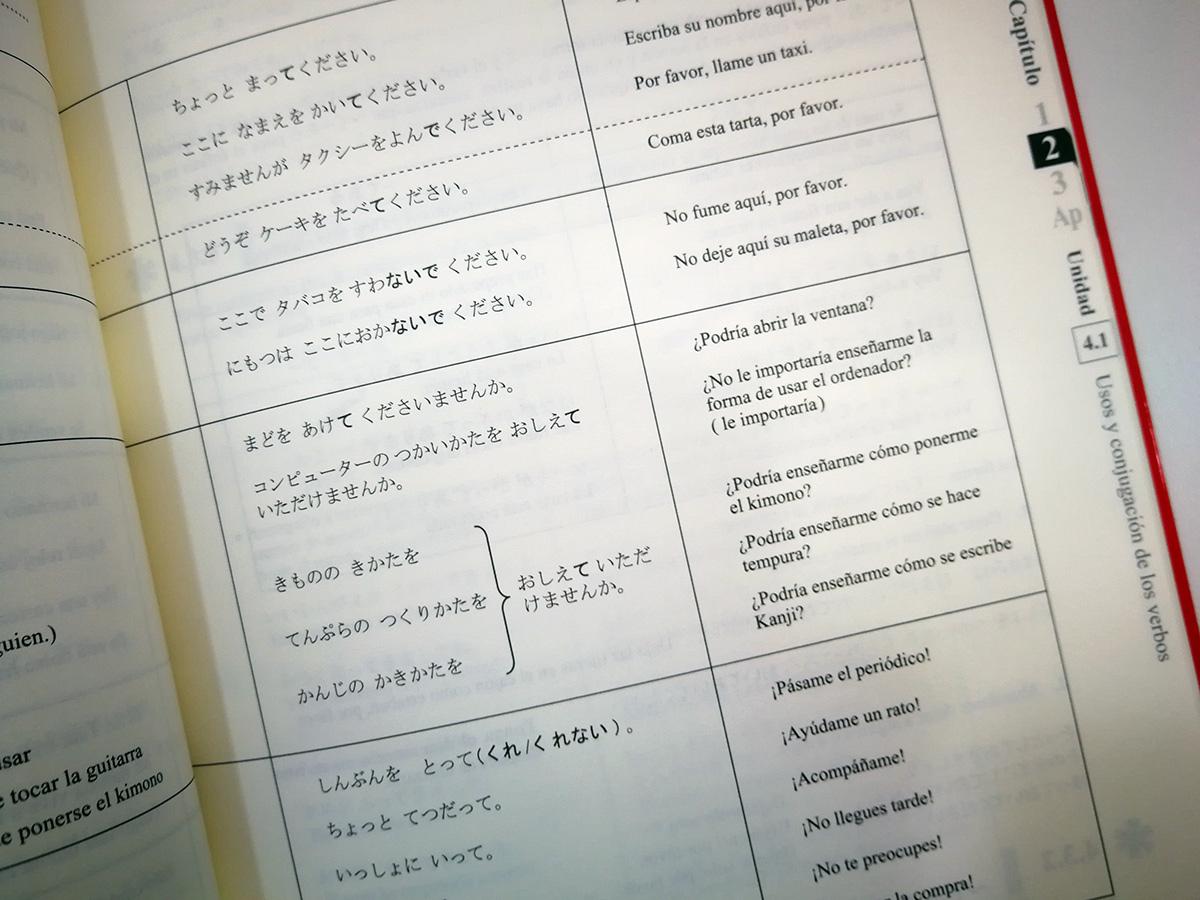 ちょっと まってください。
ここに なまえを かいてください。
すみませんが タクシーをよんでください。
どうぞ ケーキを たべてください。
ここで タバコを すわないで ください。
にもつは ここにおかないで ください。
まどを あけて くださいませんか。
コンピューターの つかいかたを おしえて
いただけませんか。
きものの きかたを
てんぷらの つくりかたを
かんじの かきかたを
おしえて いただ
けませんか。
しんぶんを とって(くれ/くれない)。
ちょっと てつだって。
いっしょに いって。
Escriba su nombre aquí,
Por favor, llame un taxi.
Coma esta tarta, por favor.
No fume aquí, por favor.
No deje aquí su maleta, por favor.
¿Podría abrir la ventana?
¿No le importaría enseñarme la
forma de usar el ordenador?
( le importaría)
¿Podría enseñarme cómo ponerme
el kimono?
¿Podría enseñarme cómo se hace
tempura?
¿Podría enseñarme cómo se escribe
Kanji?
¡Pásame el periódico!
¡Ayúdame un rato!
¡Acompáñame!
¡No llegues tarde!
¡No te preocupes!
la compra!
Capítulo
1
2
3
Ap
Unidad
4.1
Usos y conjugación de los verbos
guien.)
sar
e tocar la guitarra
e ponerse el kimono